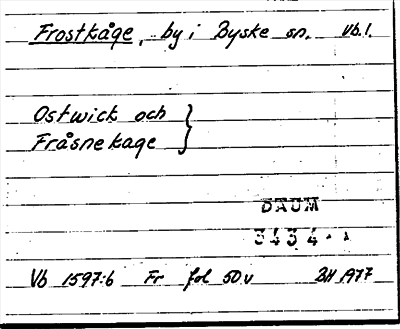 Frostkåge, by i Byske sn. Vb.l.
Ostwick och
Fråsnekage
DAUM
3434
Vb 1597:6 Fr fol 50v BH 1977